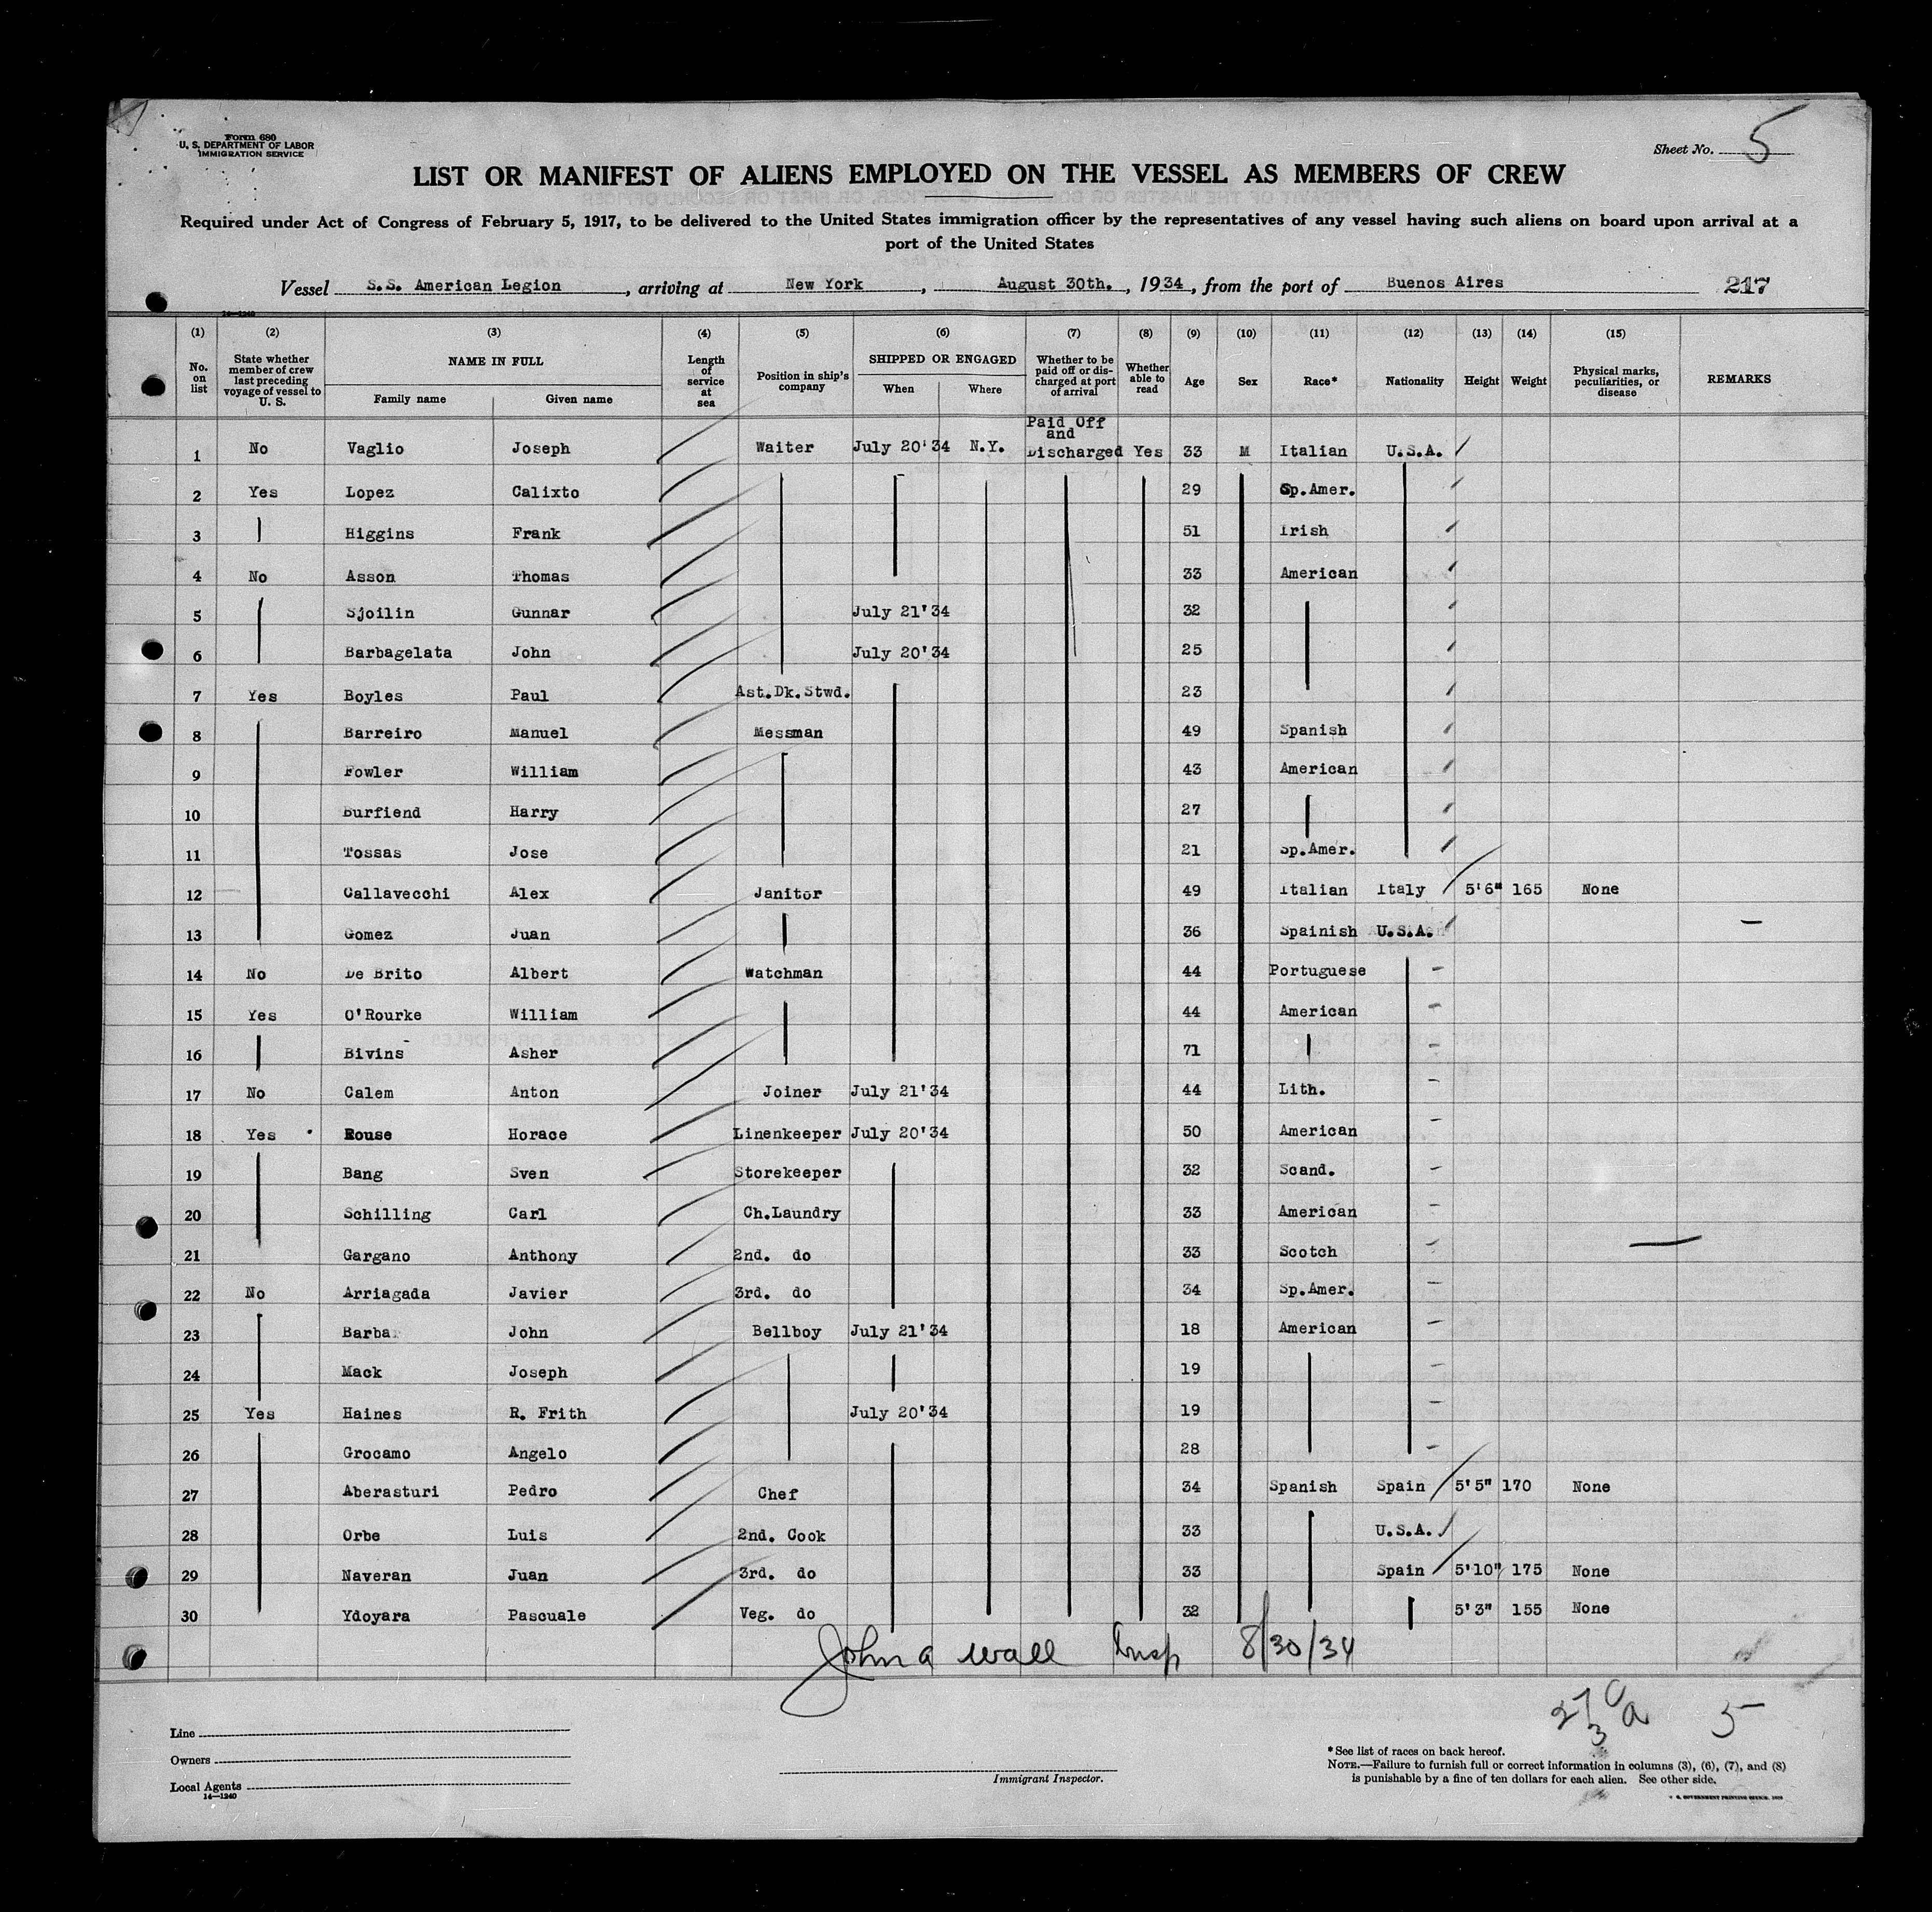 Form 680
U. S. DEPARTMENT OF LABOR
IMMIGRATION SERVICE
Sheet No. 5
LIST OR MANIFEST OF ALIENS EMPLOYED ON THE VESSEL AS MEMBERS OF CREW
Required under Act of Congress of February 5, 1917, to be delivered to the United States immigration officer by the representatives of any vessel having such aliens on board upon arrival at a
port of the United States
Vessel S.S. American Legion, arriving at New York, August 30th., 1934, from the port of Buenos Aires 217
14—1240
(1) (2) (3) (4) (5) (6) (7) (8) (9) (10) (11) (12) (13) (14) (15)
No. on list State whether member of crew last preceding voyage of vessel to U. S. NAME IN FULL Family name Given name Length of service at sea Position in ship's company SHIPPED OR ENGAGED When Where Whether to be paid off or discharged at port of arrival Whether able to read Age Sex Race* Nationality Height Weight Physical marks, peculiarities, or disease REMARKS
1 No Vaglio Joseph Waiter July 20'34 N.Y. Paid Off and Discharged Yes 33 M Italian U.S.A.
2 Yes Lopez Calixto 29 Sp.Amer.
3 Higgins Frank 51 Irish
4 No Asson Thomas 33 American
5 Sjoilin Gunnar July 21'34 32
6 Barbagelata John July 20'34 25
7 Yes Boyles Paul Ast.Dk.Stwd. 23
8 Barreiro Manuel Messman 49 Spanish
9 Fowler William 43 American
10 Burfiend Harry 27
11 Tossas Jose 21 Sp.Amer.
12 Callavecchi Alex Janitor 49 Italian Italy 5'6" 165 None
13 Gomez Juan 36 Spainish U.S.A.
14 No De Brito Albert Watchman 44 Portuguese
15 Yes O'Rourke William 44 American
16 Bivins Asher 71
17 No Calem Anton Joiner July 21'34 44 Lith.
18 Yes Rouse Horace Linenkeeper July 20'34 50 American
19 Bang Sven Storekeeper 32 Scand.
20 Schilling Carl Ch.Laundry 33 American
21 Gargano Anthony 2nd. do 33 Scotch
22 No Arriagada Javier 3rd. do 34 Sp.Amer.
23 Barba John Bellboy July 21'34 18 American
24 Mack Joseph 19
25 Yes Haines R. Frith July 20'34 19
26 Grocamo Angelo 28
27 Aberasturi Pedro Chef 34 Spanish Spain 5'5" 170 None
28 Orbe Luis 2nd. Cook 33 U.S.A.
29 Naveran Juan 3rd. do 33 Spain 5'10" 175 None
30 Ydoyara Pascuale Veg. do 32 5'3" 155 None
John A Wall Insp 8/30/34
27 C
3 a
5
Line
Owners
Local Agents
14—1240
Immigrant Inspector.
* See list of races on back hereof.
NOTE.—Failure to furnish full or correct information in columns (3), (6), (7), and (8)
is punishable by a fine of ten dollars for each alien. See other side.